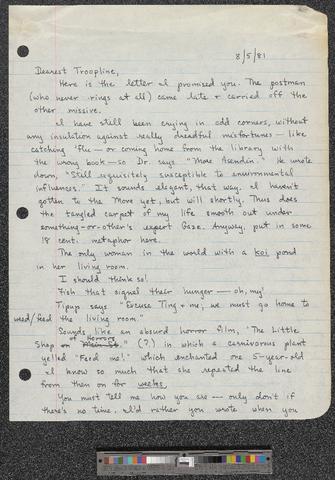 8/5/81
Dearest Troopline,
Here is the letter I promised you. The postman
(who never rings at all) came late & carried off the
other missive.
I have still been crying in odd corners, without
any insulation against really dreadful misfortunes — like
catching 'flu — or coming home from the library with
the wrong book — so Dr. says "More Asendin." He wrote
down, "Still exquisitely susceptible to environmental
influences." It sounds elegant, that way. I haven't
gotten to the More yet, but will shortly. Thus does
the tangled carpet of my life smooth out under
something-or-other's expert Gaze. Anyway, put in some
18 cent. metaphor here.
The only woman in the world with a koi pond
in her living room.
I should think so!
Fish that signal their hunger — oh, my!
Tipup says "Excuse Ting & me, we must go home to
weed/feed the living room."
Sounds like an absurd horror film, "The Little
Shop of Horrors" (?) in which a carnivorous plant
yelled "Feed me!" which enchanted one 5-year-old
I know so much that she repeated the line
from then on for weeks.
You must tell me how you are — only don't if
there's no time. I'd rather you wrote when you